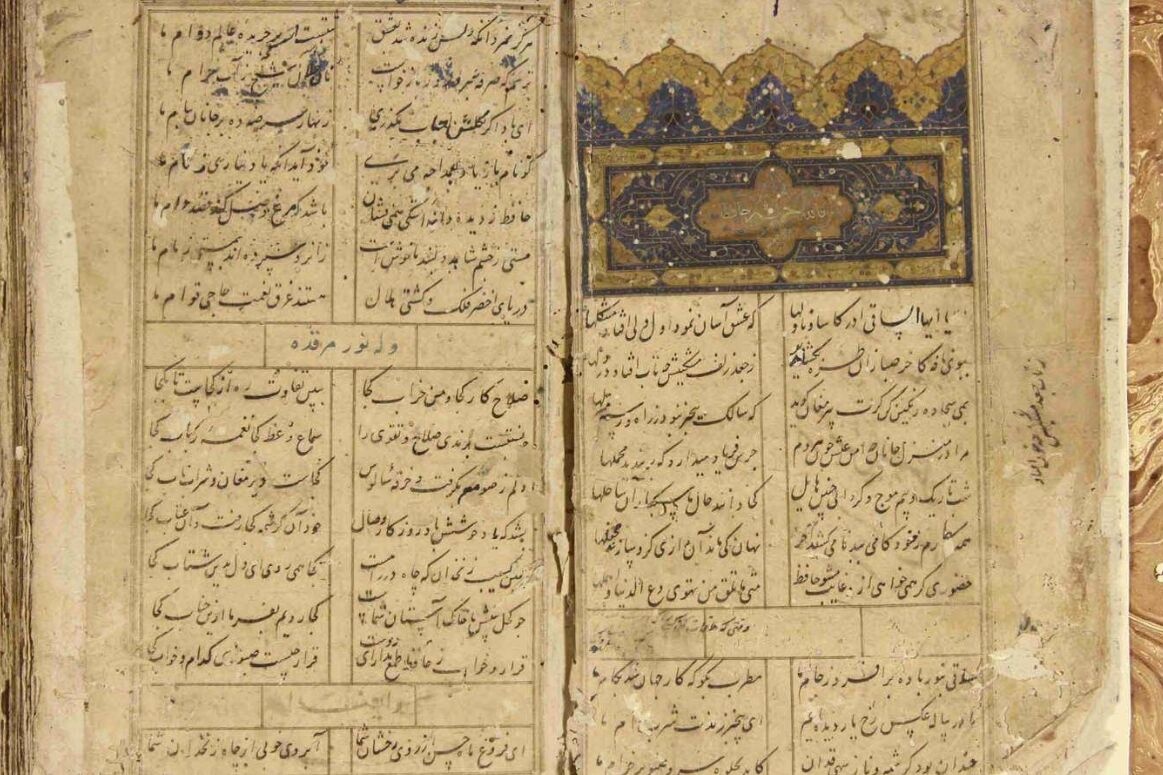 الا یا ایها الساقی ادر کاسا و ناولها که عشق آسان نمود اول ولی افتاد مشکلها
ببوی نافه کاخر صبا زان طره بکشاید ز جعد زلف مشکینش چه تاب افتاد در دلها
بمی سجاده رنگین کن کرت پیر مغان کوید که سالک بیخبر نبود ز راه و رسم منزلها
مرا در منزل جانان چه امن عیش چون هر دم جرس فریاد میدارد که بربندید محملها
شب تاریک و بیم موج و کردابی چنین هایل کجا دانند حال ما سبکباران ساحلها
همه کارم ز خود کامی ببدنامی کشید آخر نهان کی ماند آن رازی کزو سازند محفلها
حضوری کر همی خواهی ازو غایب مشو حافظ متی ما تلق من تهوی دع الدنیا و اهملها
ساقی بنور باده برافروز جام ما مطرب بکو که کار جهان شد بکام ما
ما در پیاله عکس رخ یار دیده ایم ای بیخبر ز لذت شرب مدام ما
چندان بود کرشمه و ناز سهی قدان کاید بجلوه سرو صنوبر خرام ما
هرکز نمیرد آنکه دلش زنده شد بعشق ثبتست بر جریده عالم دوام ما
ترسم که صرفه نبرد روز بازخواست نان حلال شیخ ز آب حرام ما
ای باد اکر بکلشن احباب بکذری زنهار عرضه ده بر جانان پیام ما
کو نام ما ز یاد بعمدا چه می بری خود آید آنکه یاد نیاری ز نام ما
حافظ ز دیده دانه اشکی همی فشان باشد که مرغ وصل کند قصد دام ما
مستی بچشم شاهد دلبند ما خوش است زانرو سپرده اند بمستی زمام ما
دریای اخضر فلک و کشتی هلال هستند غرق نعمت حاجی قوام ما
وله نور مرقده
صلاح کار کجا و من خراب کجا ببین تفاوت ره از کجاست تا بکجا
چه نسبتست برندی صلاح و تقوی را سماع وعظ کجا نغمه رباب کجا
دلم ز صومعه بکرفت و خرقه سالوس کجاست دیر مغان و شراب ناب کجا
بشد که یاد خوشش باد روزکار وصال خود آن کرشمه کجا رفت و آن عتاب کجا
مبین بسیب زنخدان که چاه در راه است کجا همی روی ای دل بدین شتاب کجا
چو کحل بینش ما خاک آستان شماست کجا رویم بفرما ازین جناب کجا
قرار و خواب ز حافظ طمع مدار ای دوست قرار چیست صبوری کدام و خواب کجا
ای فروغ ماه حسن از روی رخشان شما آبروی خوبی از چاه زنخدان شما